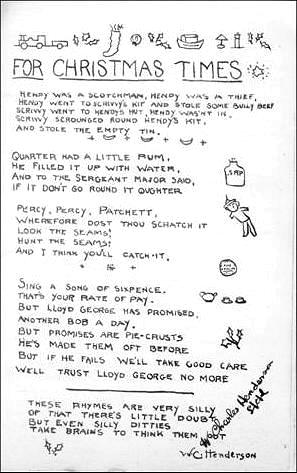 FOR CHRISTMAS TIMES
HENDY WAS A SCOTCHMAN, HENDY WAS A THIEF,
HENDY WENT TO SCRIVVY'S KIT AND STOLE SOME BULLY BEEF
SCRIVVY WENT TO HENDY'S HUT, HENDY WASN'T IN.
SCRIVVY SCROUNGED ROUND HENDY'S KIT,
AND STOLE THE EMPTY TIN.
QUARTER HAD A LITTLE RUM,
HE FILLED IT UP WITH WATER,
AND TO THE SERGEANT MAJOR SAID,
IF IT DON'T GO ROUND IT OUGHTER
S.R.D
PERCY, PERCY, PATCHETT,
WHEREFORE DOST THOU SCHATCH IT
LOOK THE SEAMS!
HUNT THE SEAMS!
AND I THINK YOU'LL CATCH-IT.
SING A SONG OF SIXPENCE.
THAT'S YOUR RATE OF PAY.
BUT LLOYD GEORGE HAS PROMISED,
ANOTHER BOB A DAY.
BUT PROMISES ARE PIE-CRUSTS
HE'S MADE THEM OFT BEFORE
BUT IF HE FAILS WE'LL TAKE GOOD CARE
WE'LL TRUST LLOYD GEORGE NO MORE
THESE RHYMES ARE VERY SILLY
OF THAT THERE'S LITTLE DOUBT
BUT EVEN SILLY DITTIES
TAKE BRAINS TO THINK THEM OUT
W.C. Henderson
W Charles Henderson